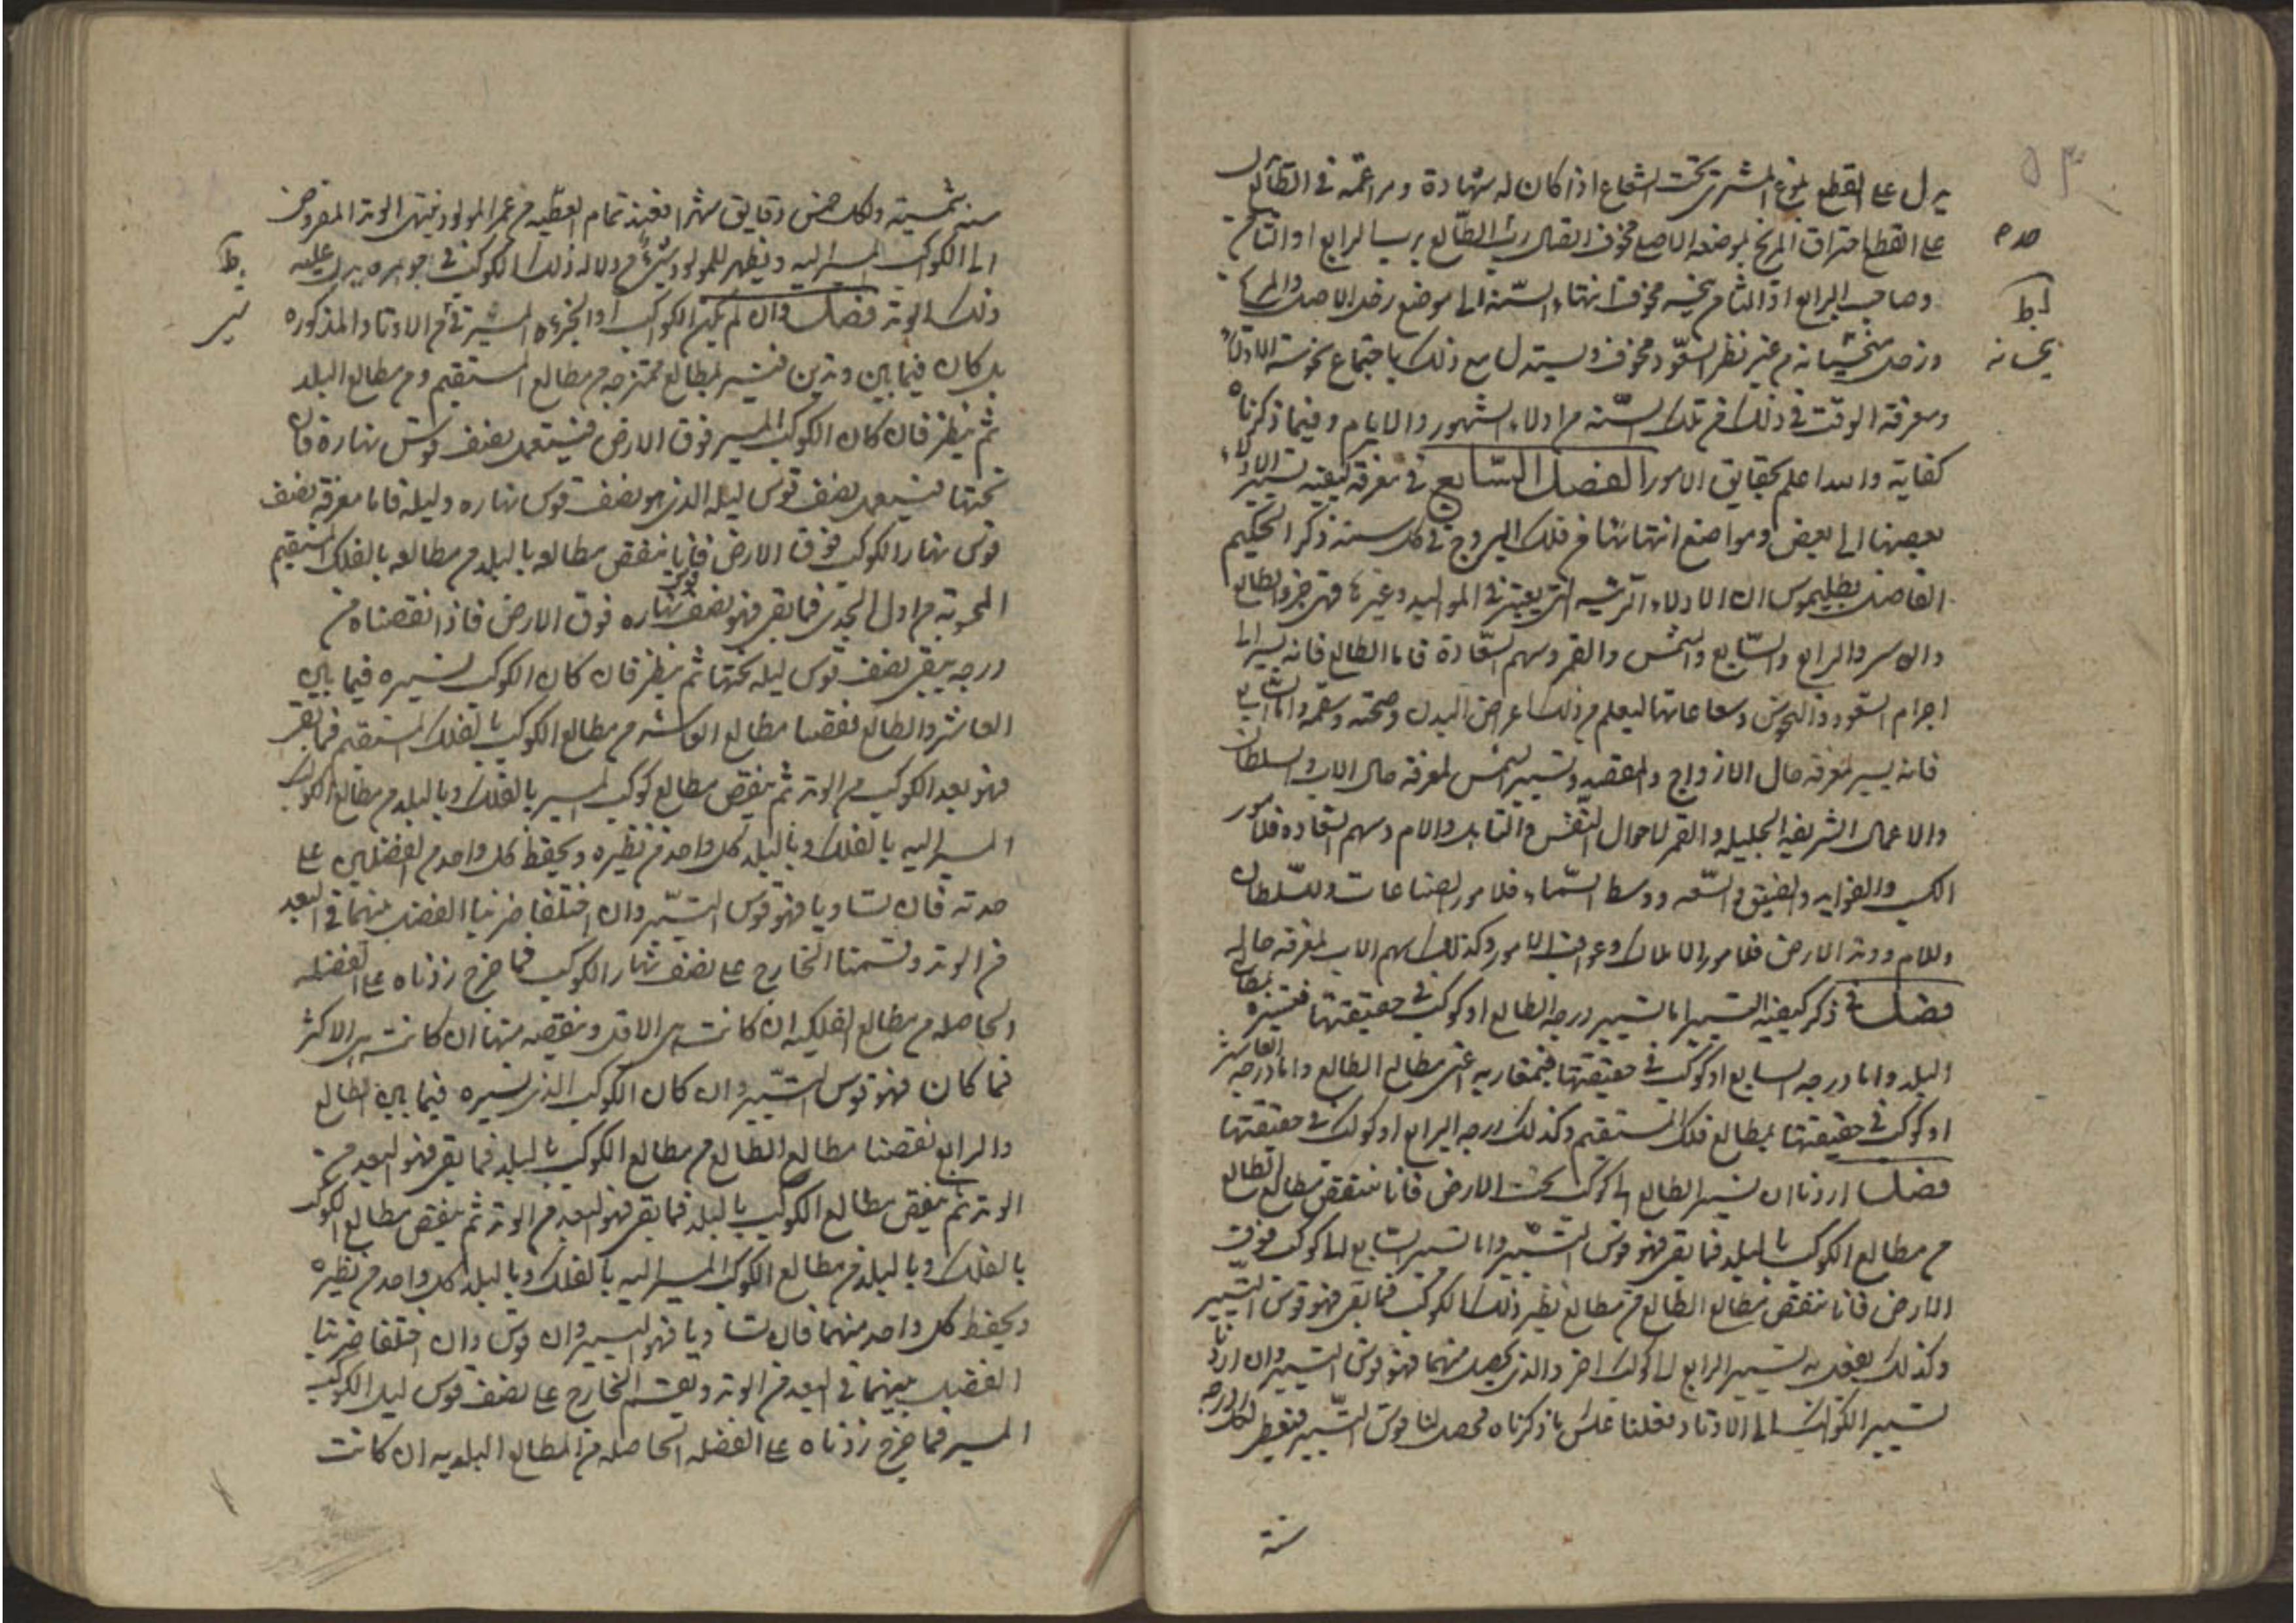 يدل على القطع بلوغ المشترى تحت الشعاع اذا كان له شهادة ومزاعمة فى الطالع
على القطع احتراق المريخ بموضعه الاصلى مخوف اتصال رب الطالع برب الرابع او الثامن
وصاحب الرابع او الثامن نحس مخوف انتهاء السنة الى موضع زحل الاصلى والمريخ
وزحل من غير نظر السعود مخوف ويستدل مع ذلك باجتماع نحوسة الادلاء
ومعرفة الوقت فى ذلك فى تلك السنه من ادلاء الشهور والايام وفيما ذكرناه
كفاية والله اعلم بحقايق الامور الفصل السابع فى معرفة كيفيه تسيير الادلاء
بعضها الى بعض ومواضع انتهائها فى فلك البروج فى كل سنه ذكر الحكيم
الفاضل بطليموس ان الادلاء الرئيسيه التى يعتبر فى المواليد وغيرها فهى جزو الطالع
والعاشر والرابع والسابع والشمس والقمر وسهم السعادة فاما الطالع فانه يسير الى
اجرام السعود والنحوس وشعاعاتها ليعلم من ذلك اعراض البدن وصحته وسقمه واما السابع
فانه يسير لمعرفة حال الازواج وتسيير الشمس لمعرفة حال الاب والسلطان
والاعمال الشريفه الجليله والقمر لاحوال النفس والام وسهم السعاده فلامور
الكسب والضيق والسعه ووسط السماء فلامور الصناعات وللسلطان
وللام ووتد الارض فلامور الاملاك وعواقب الامور وكذلك سهم الاب لمعرفة حاله
فصل فى ذكر كيفيه التسيير اما تسيير درجه الطالع او كوكب فى حقيقتها فتسيره بمطالع
البلد واما درجه السابع او كوكب فى حقيقتها فبمغاربه اعنى مطالع الطالع واما درجه العاشر
او كوكب فى حقيقتها بمطالع فلك المستقيم وكذلك درجه الرابع او كوكب فى حقيقتها
فصل اردنا ان نسير الطالع الى كوكب تحت الارض فانا ننقص مطالع الطالع
من مطالع الكوكب بالبلد فما بقى فهو قوس التسيير واما تسيير السابع الى كوكب فوق
الارض فانا ننقص مطالع الطالع من مطالع نظير ذلك الكوكب فما بقى فهو قوس التسيير
وكذلك يفعل به تسيير الرابع الى كوكب اخر والذى يحصل منهما فهو قوس التسيير وان اردنا
تسيير الكواكب الى الاوتاد فعلنا عكس ما ذكرناه فحصل لنا قوس التسيير فنعطى لكل درجه
سنة
صه م
ط
نحسانه
سنه شمسيه ولكل خمس دقايق شهرا فعند تمام العطيه من عمر المولود ينتهى الوتد المفروض
الى الكوكب المسير اليه ويظهر للمولود شىء من دلاله ذلك الكوكب فى جوهره يدل عليه
ذلك الوتد فصل وان لم يكن الكواكب او الجزء المسير فى الاوتاد المذكوره
بل كان فيما بين وتدين فنسير بمطالع ممتزجه من مطالع المستقيم ومن مطالع البلد
ثم ينظر فان كان الكوكب المسير فوق الارض فنستعمل نصف قوس نهاره فان
تحتها فنستعمل نصف قوس ليله الذى هو نصف قوس نهاره وليله فاما معرفة نصف
قوس نهار الكوكب فوق الارض فانا ننقص مطالعه بالبلد من مطالعه بالفلك المستقيم
المحوبه من اول الجدى فما بقى فهو نصف قوس نهاره فوق الارض فاذا نقصناه من
درجه يبقى نصف قوس ليله تحتها ثم ينظر فان كان الكوكب نسيره فيما بين
العاشر والطالع نقصنا مطالع العاشر من مطالع الكوكب بالفلك المستقيم فما بقى
فهو بعد الكوكب من الوتد ثم ينقص مطالع كوكب المسير بالفلك وبالبلد من مطالع الكوكب
المسير اليه بالفلك وبالبلد كل واحد من نظيره ويحفظ كل واحد من الفضلين على
حدته فان تساويا فهو قوس التسيير وان اختلفا ضربنا الفضل بينهما فى البعد
من الوتد وقسمنا الخارج على نصف نهار الكوكب فما خرج زدناه على الفضله
الحاصله من مطالع الفلكيه ان كانت هى الاقل وننقصه منها ان كانت هى الاكثر
فما كان فهو قوس التسيير وان كان الكوكب الذى نسيره فيما بين الطالع
والرابع نقصنا مطالع الطالع من مطالع الكوكب بالبلد فما بقى فهو البعد من
الوتد ثم ينقص مطالع الكوكب بالبلد فما بقى فهو البعد من الوتد ثم ينقص مطالع الكوكب
بالفلك وبالبلد من مطالع الكوكب المسير اليه بالفلك وبالبلد كل واحد من نظيره
ويحفظ كل واحد منهما فان تساويا فهو التسيير وان قوس وان اختلفا ضربنا
الفضل بينهما فى البعد من الوتد ويقسم الخارج على نصف قوس ليل الكوكب
المسير فما خرج زدناه على الفضله الحاصله من المطالع البلديه ان كانت
ط